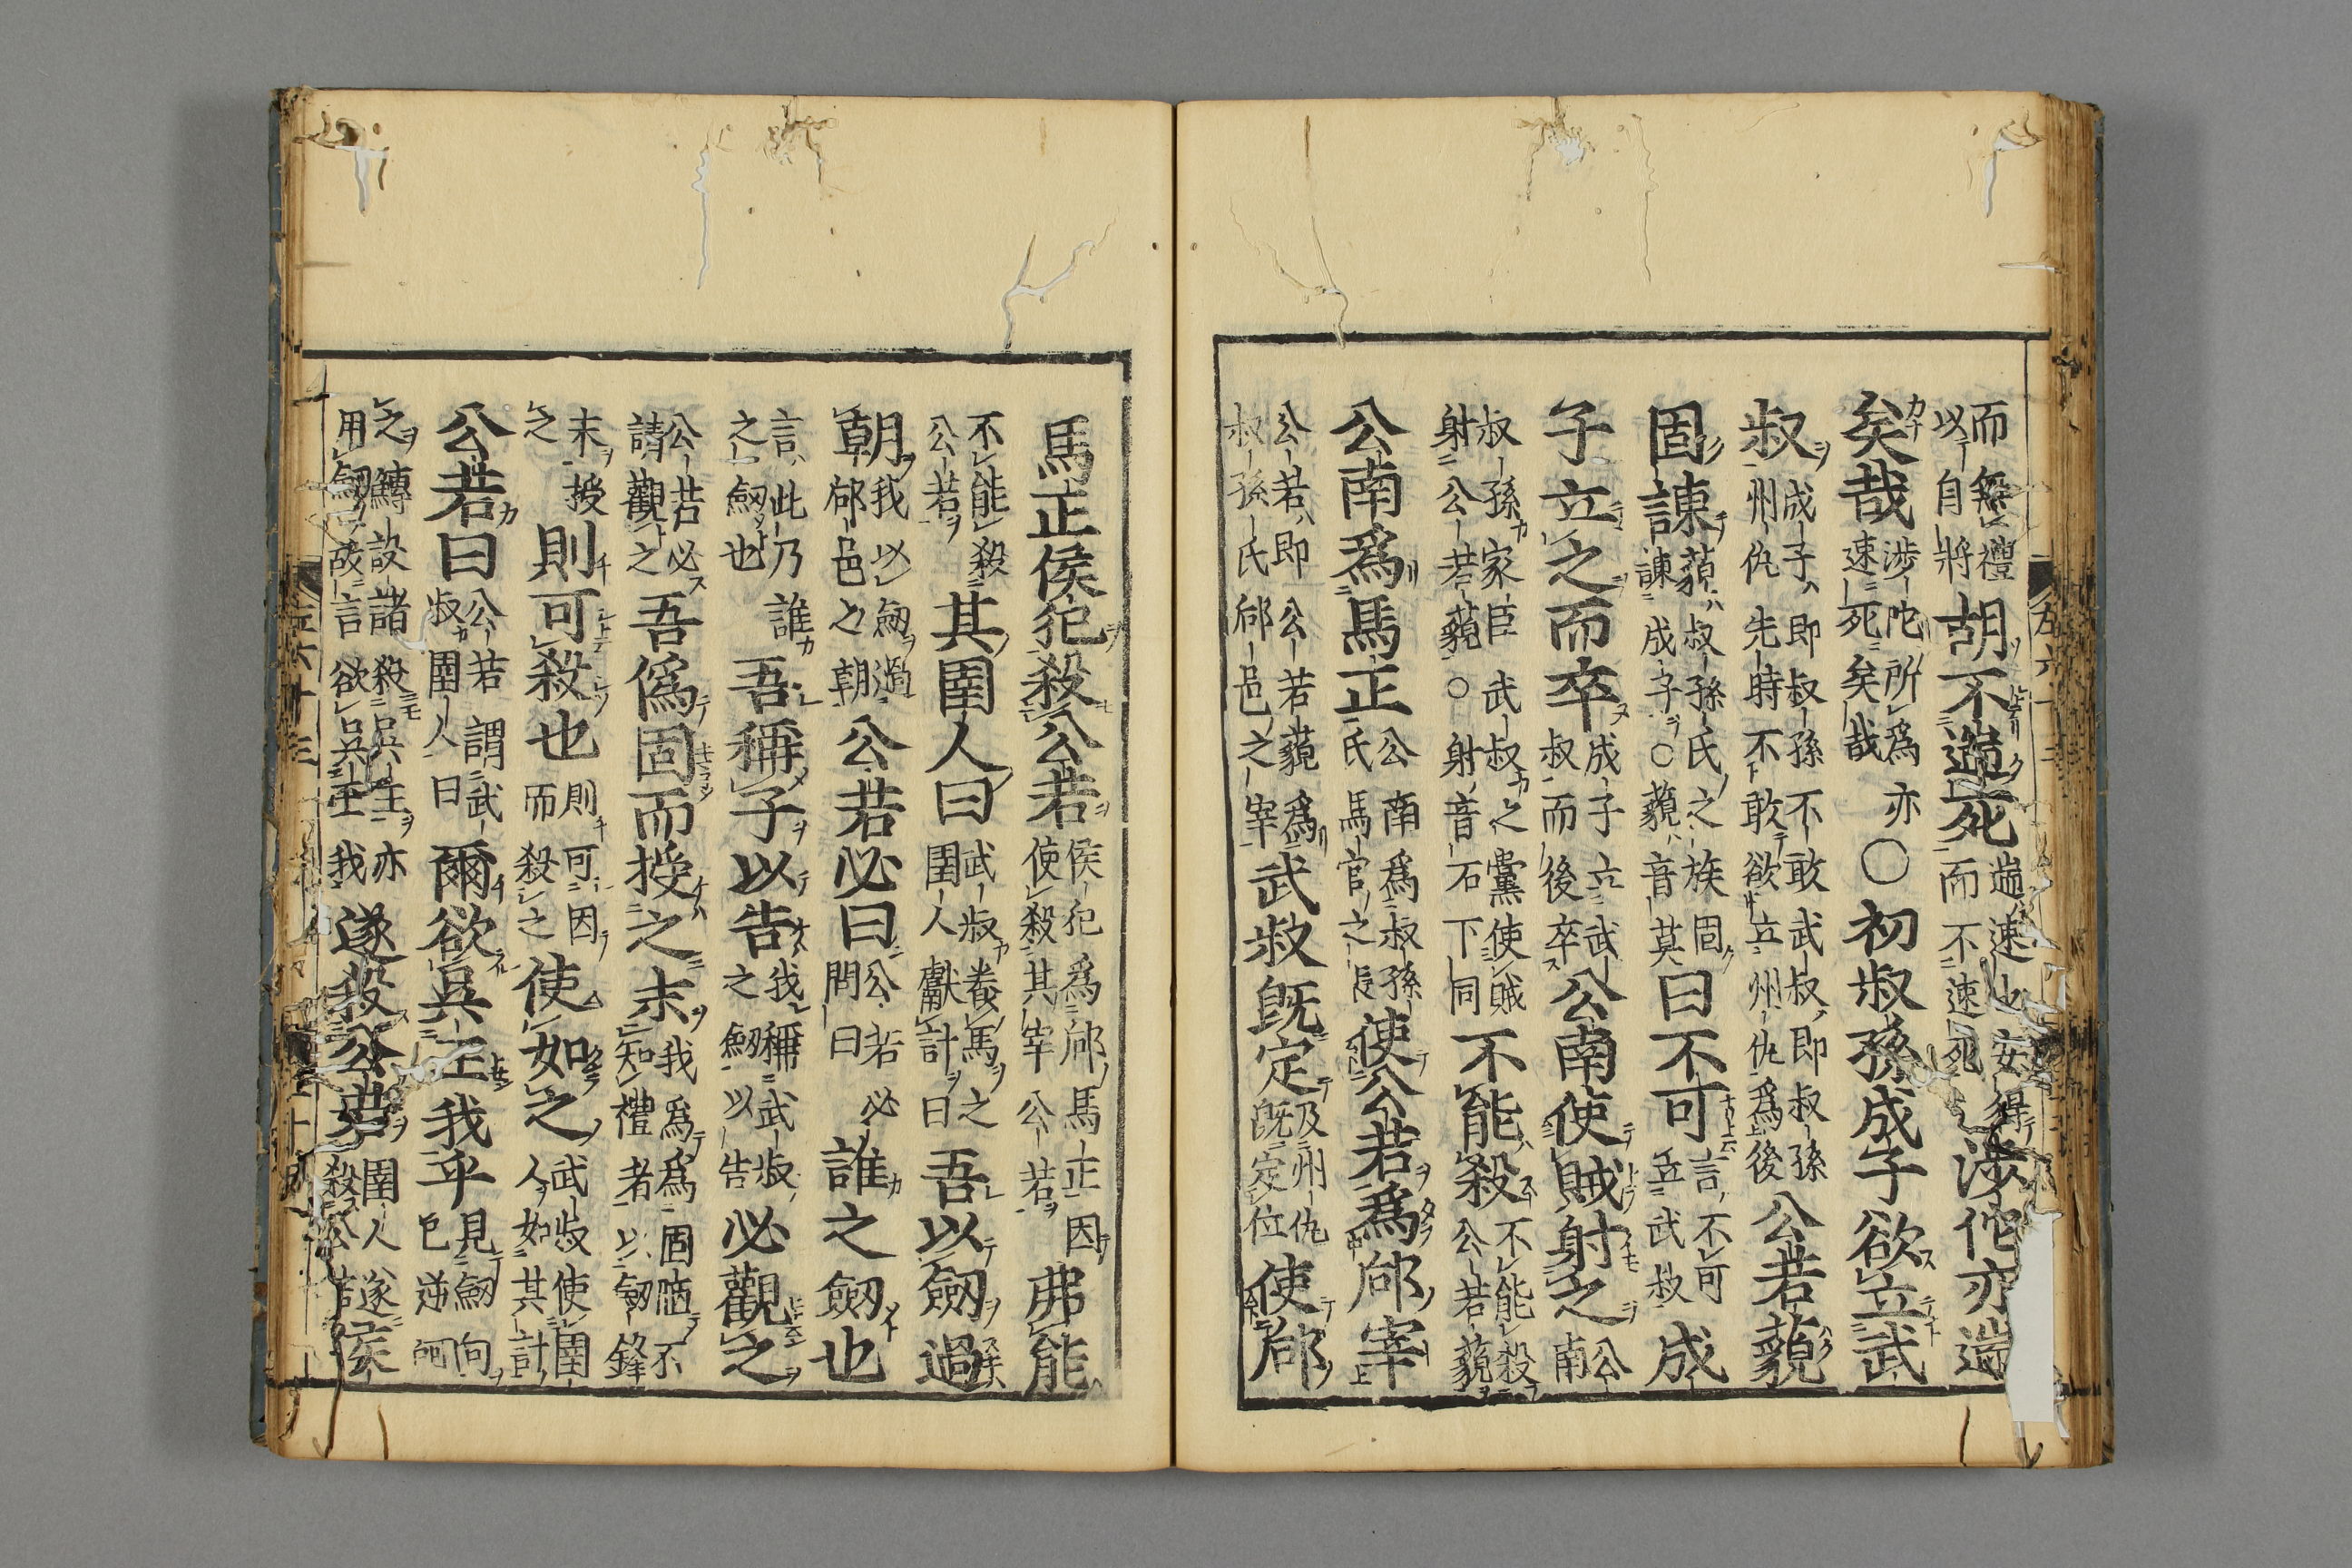 而無禮
以自將
胡不遄死
遄速也安得
而不速死
涉佗亦遄
矣哉
涉佗所爲亦
速死矣哉
○初叔孫成子欲立武
叔
成子即叔孫不敢武叔即叔孫
州仇先時不敢欲立州仇爲後
公若藐
固諫
藐叔孫氏之族固
諫成子○藐音莫
曰不可
言不可
立武叔
成
子立之而卒
成子立武
叔而後卒
公南使賊射之
公
南
叔孫家臣武叔之黨使賊
射公若藐○射音石下同
不能殺
不能殺
公若藐
公南爲馬正
公南爲叔孫
氏馬官之長
使公若爲郈宰
公若即公若藐爲
叔孫氏郈邑之宰
武叔既定
及州仇
既定位
使郈
馬正侯犯殺公若
侯犯爲郈馬正因
使殺其宰公若
弗能
不能殺
公若
其圉人曰
武叔養馬之
圉人獻計曰
吾以劔過
朝
我以劔過
郈邑之朝
公若必曰
公若必
問曰
誰之劔也
言此乃誰
之劔也
吾稱子以告
我稱武叔
之劔以告
必觀之
公若必
請觀之
吾僞固而授之末
我爲爲固陋不
知禮者以劔鋒
末授
之
則可殺也
則可因
而殺之
使如之
武叔使圉
人如其計
公若曰
公若謂武
叔圉人曰
爾欲吳王我乎
見劔向
已逆呵
之鱄設諸殺吳王亦
用劔故言欲吳王我
遂殺公若
圉人遂
殺公若
侯